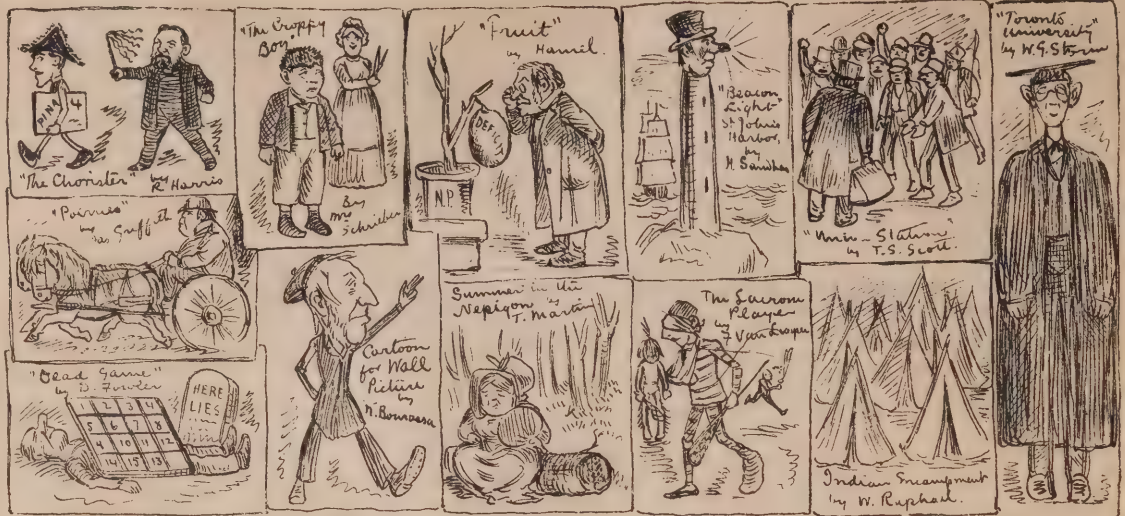 PINA
4
"The Chorister" by
R. Harris
"The Croppy
Boy
By
Mrs
Schrieber
"Fruit"
by Hamel.
DEFICIT
N.P.
"Beacon
Light"
St Johns
Harbor,
by
H. Sandham
"Union Station"
by T.S. Scott.
"Toronto
University"
by W.G. Storm
"Ponies"
by
Jas Griffith
"Dead Game"
by D. Fowler
1 2 3 4
5 6 7 8
9 10 11 12
14 15 13
HERE
LIES
Cartoon
for Wall
Picture
by
N. Bourassa
Summer in the
Nepigon by
T. Martin
The Lacrosse
Player
by
Indian Encampment
by W. Raphael.